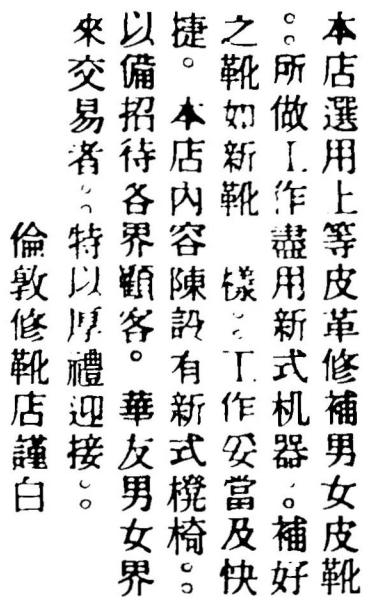 本店選用上等皮革修補男女皮靴
。。所做工作盡用新式机器。。補好
之靴如新靴 樣。。工作妥當及快
捷。本店內容陳設有新式櫈椅。。
以備招待各界顧客。華友男女界
來交易者。。特以厚禮迎接。。
倫敦修靴店謹白